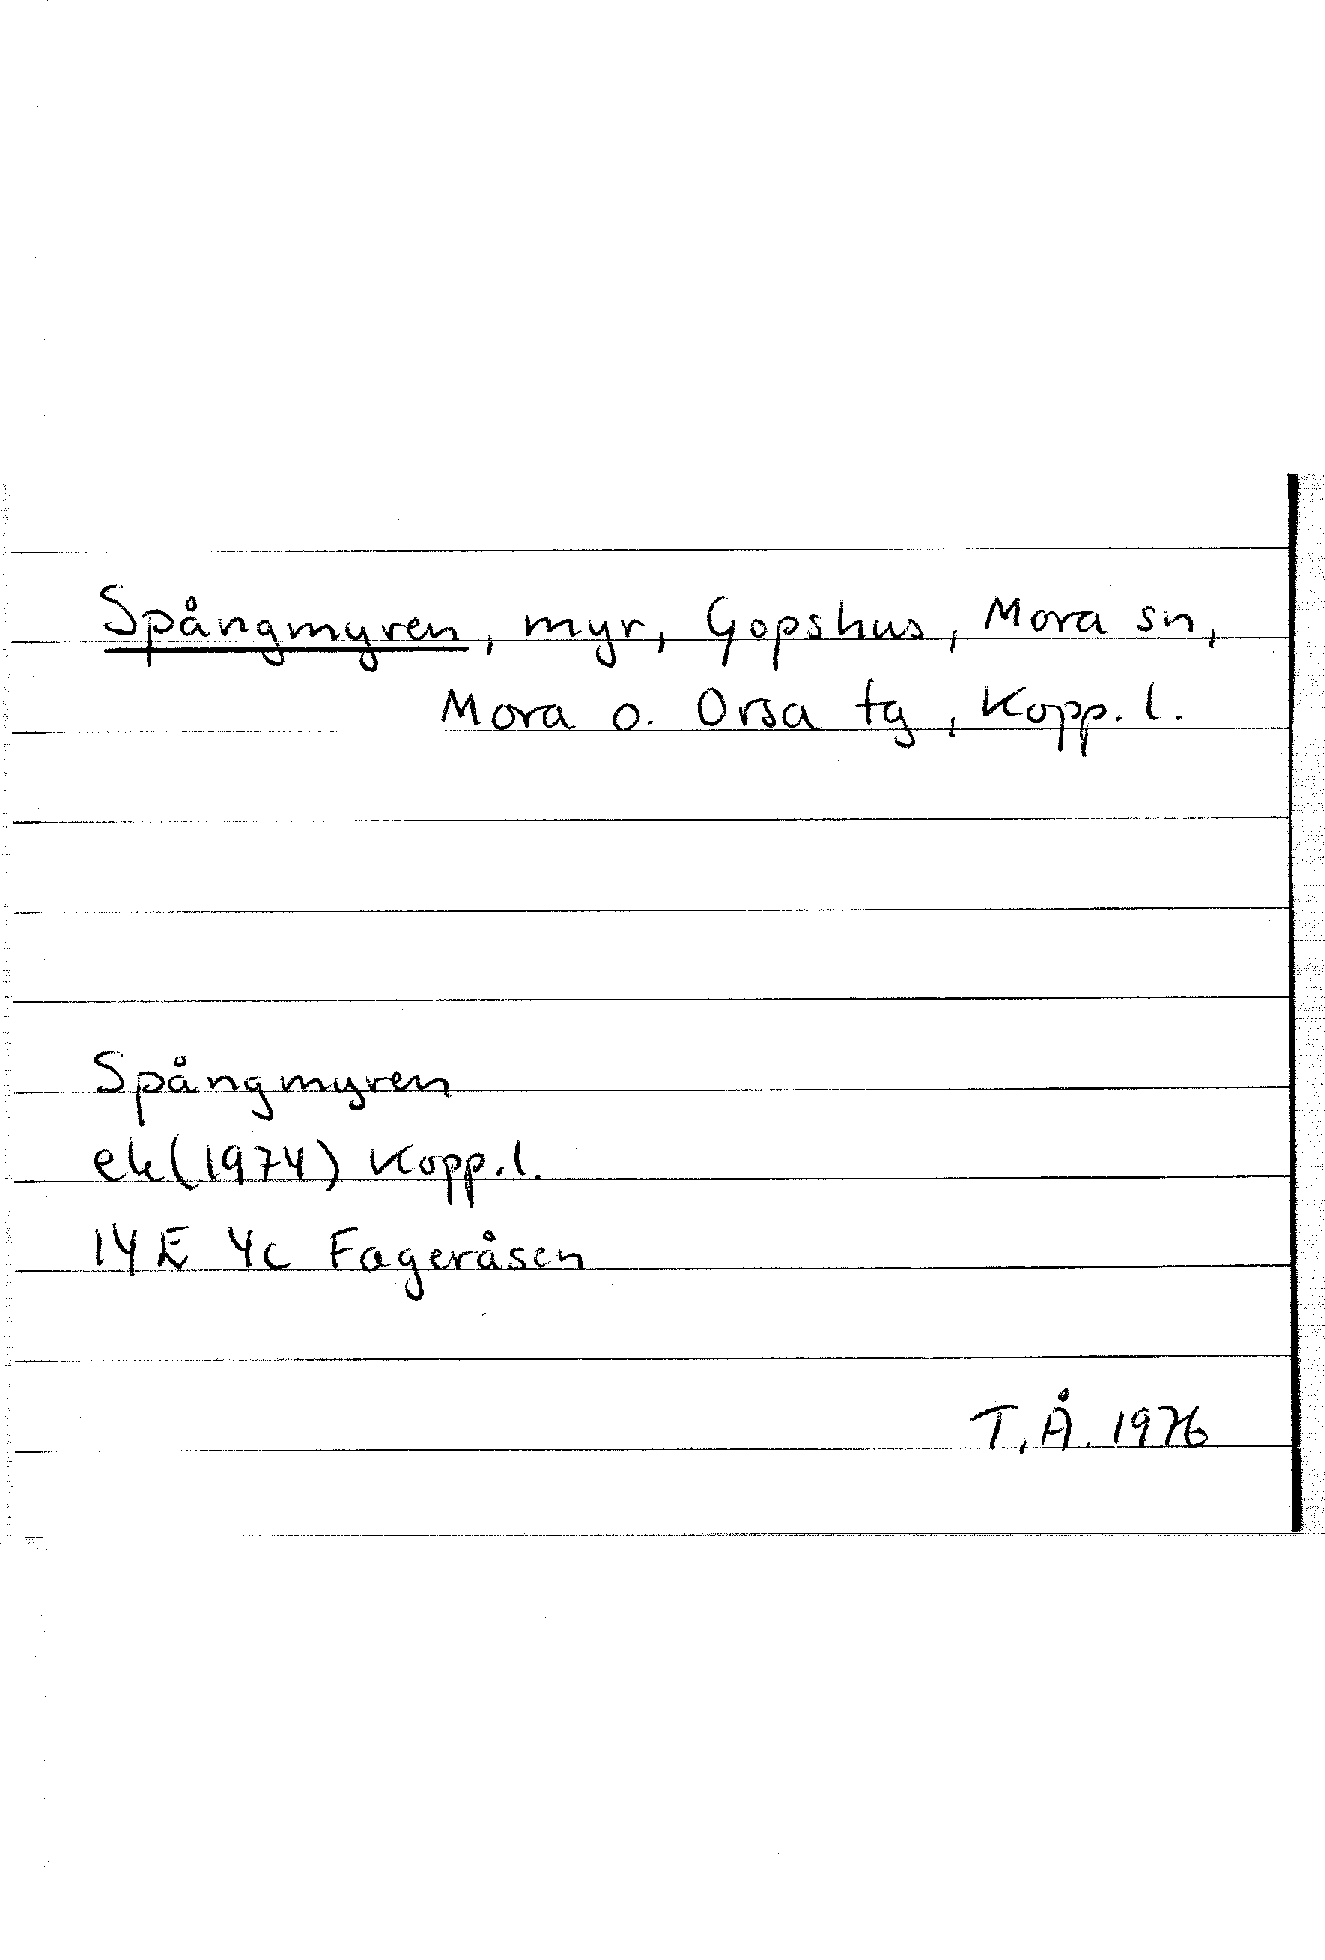 Spångmyren, myr, Gopshus, Mora sn,
Mora o. Orsa tg, Kopp. l.
Spångmyren
ek (1974) Kopp. l.
14 E 4c Fageråsen
T. Å. 1976